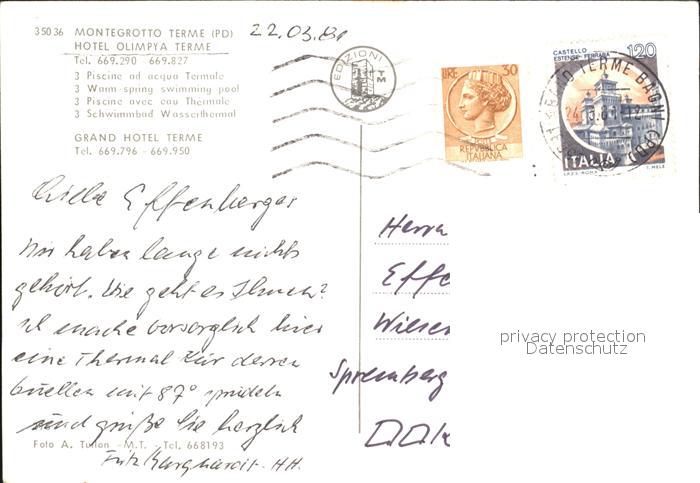 35036 MONTEGROTTO TERME (PD)
HOTEL OLIMPYA TERME
Tel. 669.290 - 669.827
3 Piscine ad acqua Termale
3 Warm-spring swimming pool
3 Piscines avec eau Thermale
3 Schwimmbad Wasserthermal
GRAND HOTEL TERME
Tel. 669.796 - 669.950
22.03.81
EDIZIONI
TM
LIRE 30
POSTE
REPUBBLICA
ITALIANA
CASTELLO
ESTENSE - FERRARA
120
ITALIA
I.P.Z.S. ROMA
T. MELE
TERME BAGNI
Liebe Effenberger
Wir haben lange nichts
gehört. Wie geht es Ihnen?
Ich mache vorsorglich hier
eine Thermal Kur deren
Quellen mit 87° sprudeln
und grüße Sie herzlich
Fritz Burghardt - HH.
Foto A. Tullon - M.T. - Tel. 668193
Herrn
Effe
Wiesen
Spremberg
DDR
privacy protection
Datenschutz